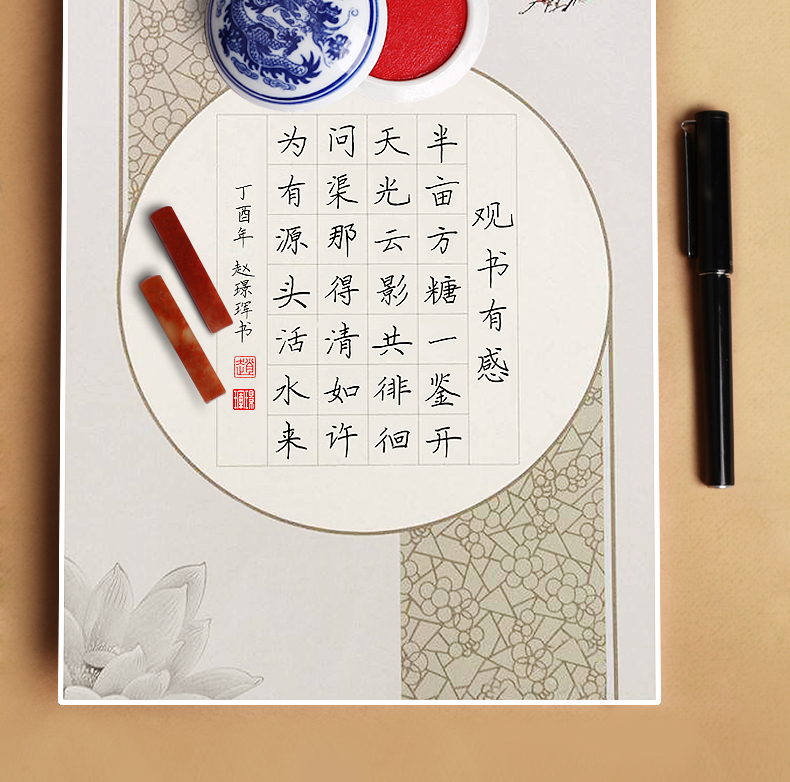 观书有感
半亩方糖一鉴开
天光云影共徘徊
问渠那得清如许
为有源头活水来
丁酉年 赵璟珲书